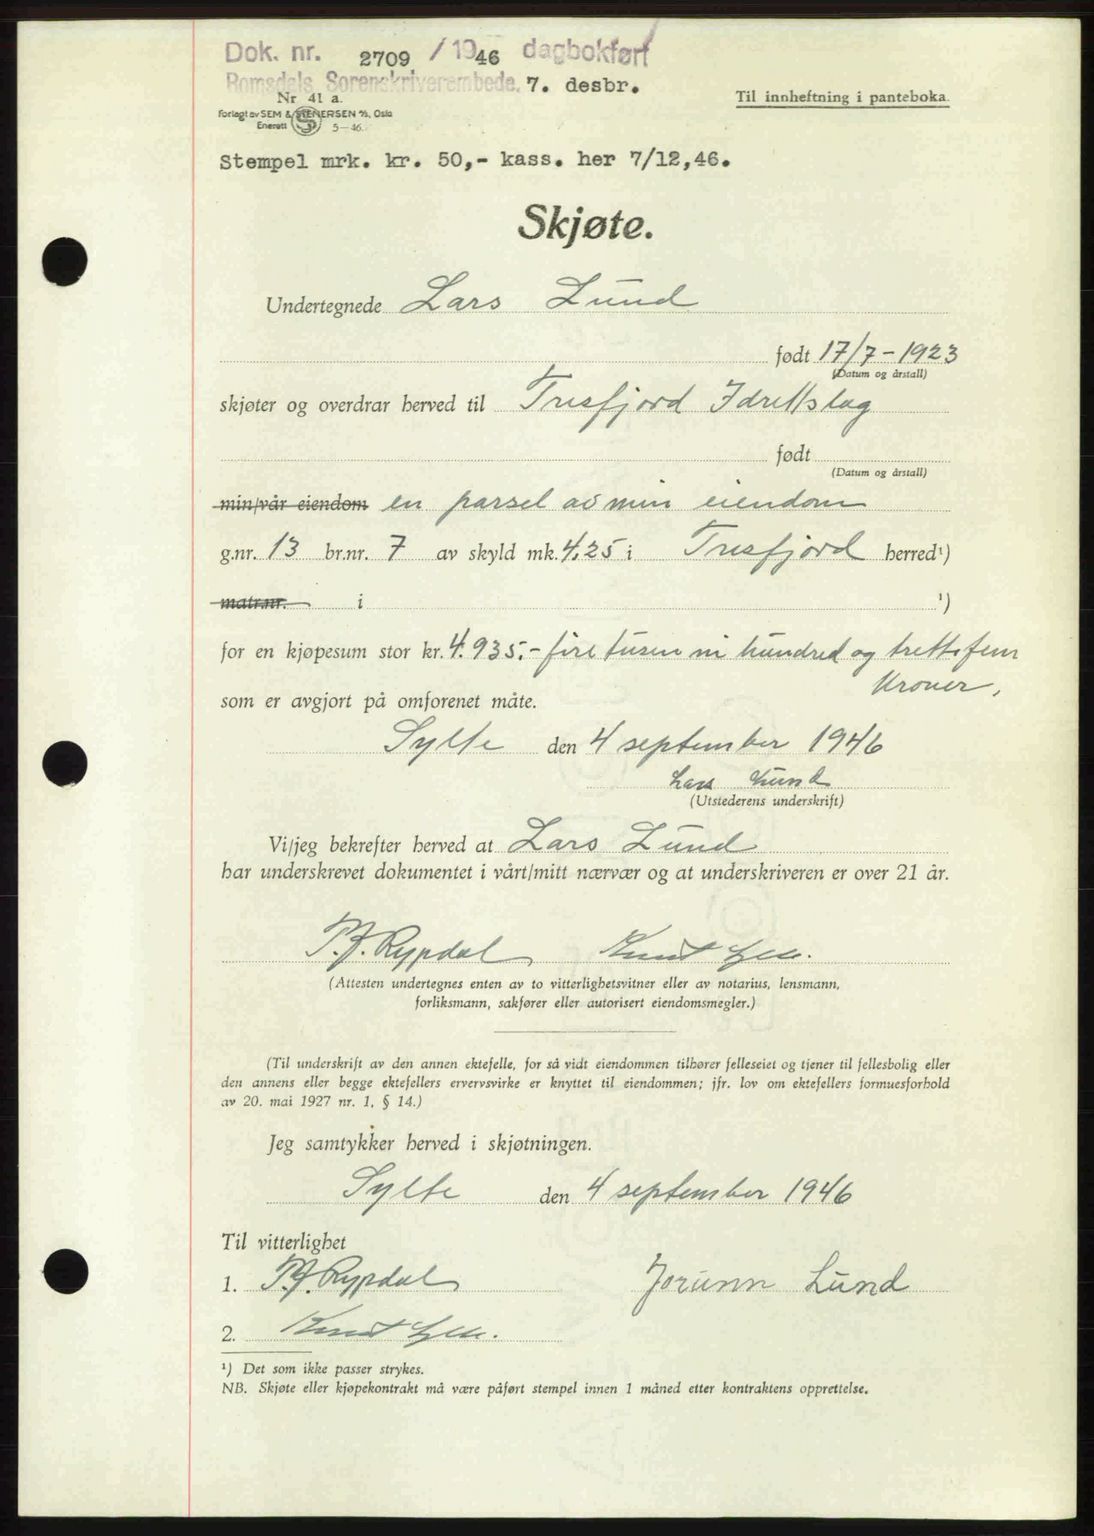 Dok. nr. 2709 / 1946 dagbokført
Romsdals Sorenskriverembede. 7. desbr.
Nr 41 a.
Til innheftning i panteboka.
Forlagt av SEM & STENERSEN A/S, Oslo
Enerett S 5—46.
Stempel mrk. kr. 50,- kass. her 7/12,46.
Skjøte.
Undertegnede Lars Lund
født 17/7-1923
(Datum og årstall)
skjøter og overdrar herved til Tresfjord Idrettslag
født
(Datum og årstall)
min/vår eiendom en parsel av min eiendom
g.nr. 13 br.nr. 7 av skyld mk. 4,25 i Tresfjord herred¹)
matr.nr. i ¹)
for en kjøpesum stor kr. 4.935.- fire tusen ni hundred og trettifem
Kroner,
som er avgjort på omforenet måte.
Sylte den 4 september 1946
Lars Lund
(Utstederens underskrift)
Vi/jeg bekrefter herved at Lars Lund
har underskrevet dokumentet i vårt/mitt nærvær og at underskriveren er over 21 år.
Rypdal Knut
(Attesten undertegnes enten av to vitterlighetsvitner eller av notarius, lensmann,
forliksmann, sakfører eller autorisert eiendomsmegler.)
(Til underskrift av den annen ektefelle, for så vidt eiendommen tilhører felleseiet og tjener til fellesbolig eller
den annens eller begge ektefellers ervervsvirke er knyttet til eiendommen; jfr. lov om ektefellers formuesforhold
av 20. mai 1927 nr. 1, § 14.)
Jeg samtykker herved i skjøtningen.
Sylte den 4 september 1946
Til vitterlighet
1. Rypdal Jorunn Lund
2. Knut
¹) Det som ikke passer strykes.
NB. Skjøte eller kjøpekontrakt må være påført stempel innen 1 måned etter kontraktens opprettelse.